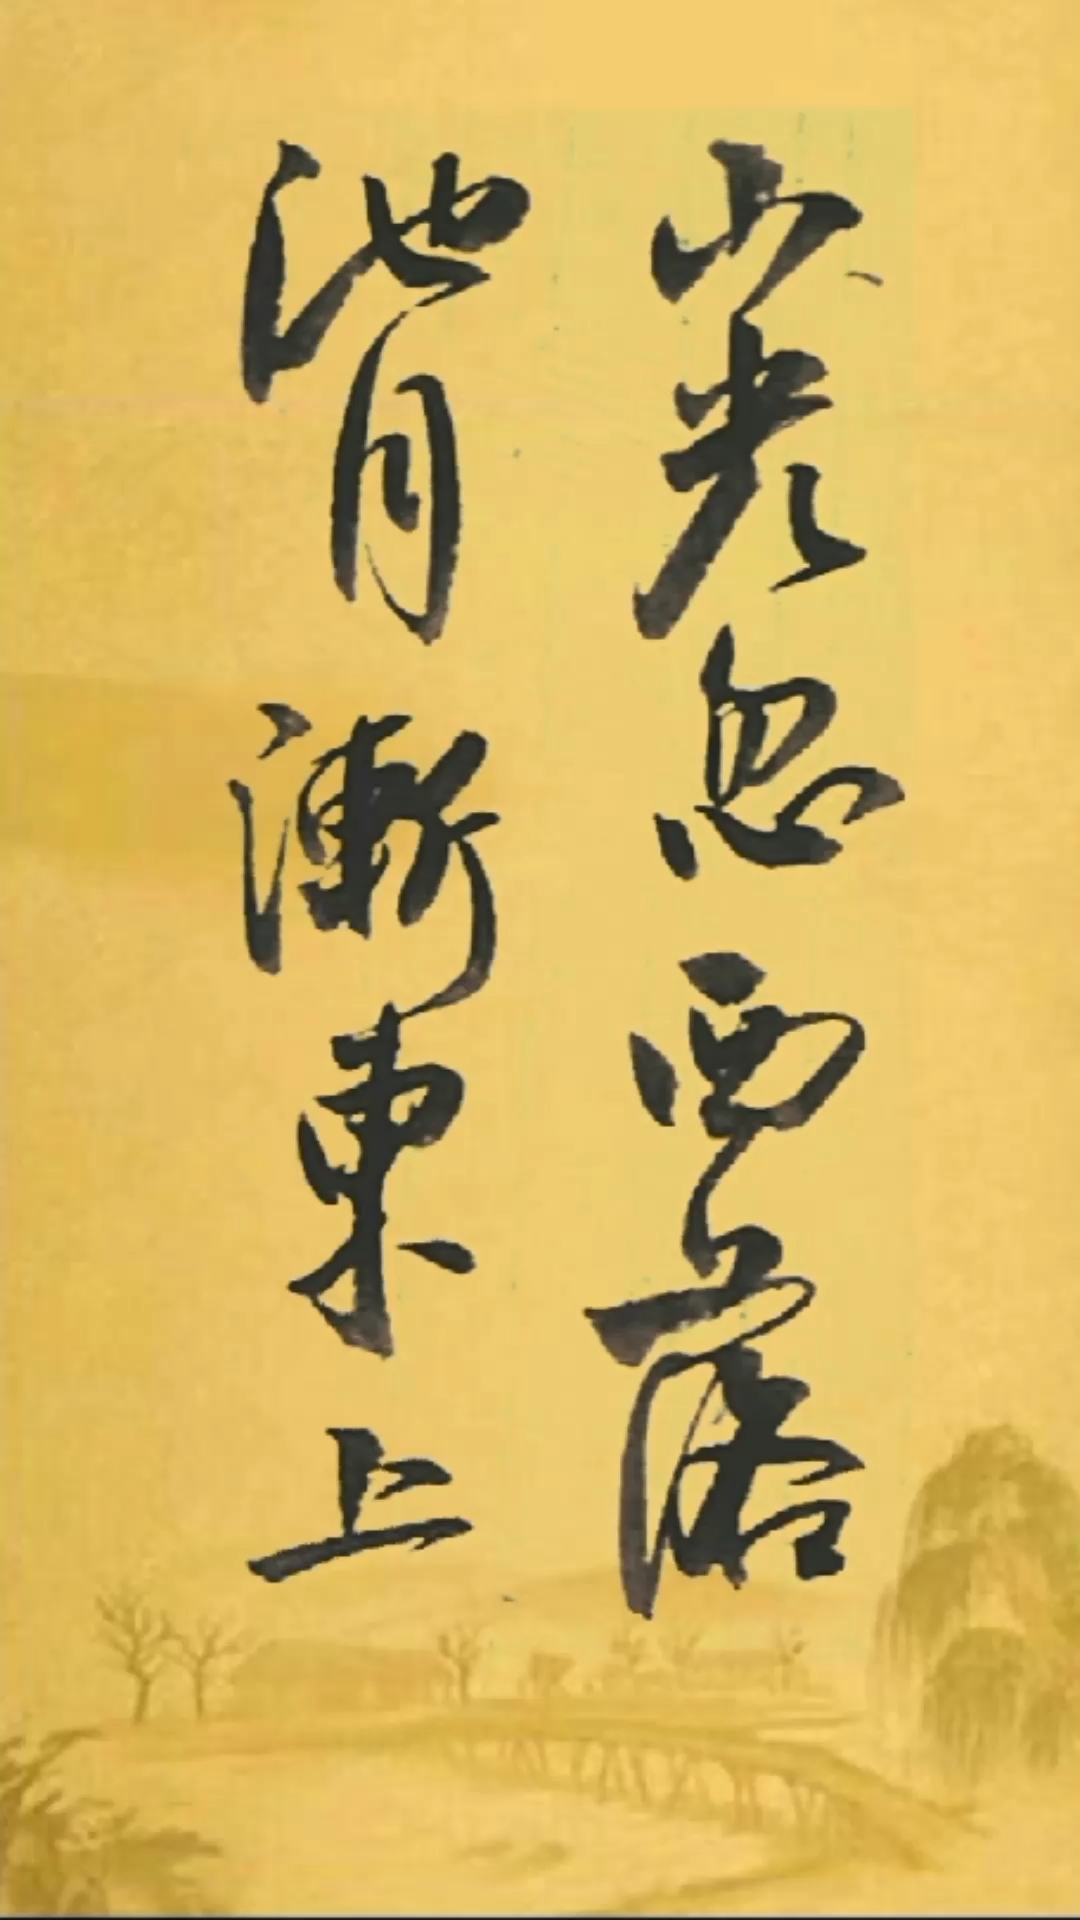 山光忽西落
池月漸東上